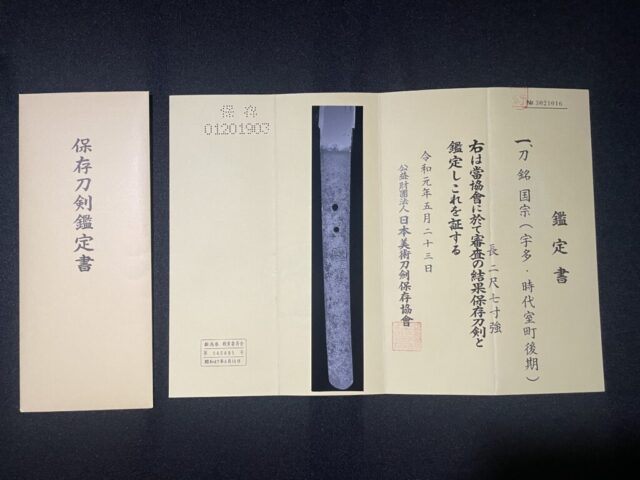 保存刀剣鑑定書
No 3021016
鑑定書
一、刀 銘 国宗(宇多・時代室町後期)
長 二尺七寸強
右は當協會に於て審査の結果保存刀剣と
鑑定しこれを証する
令和元年五月二十三日
公益財團法人日本美術刀剣保存協會
保存
01201903
教育委員会